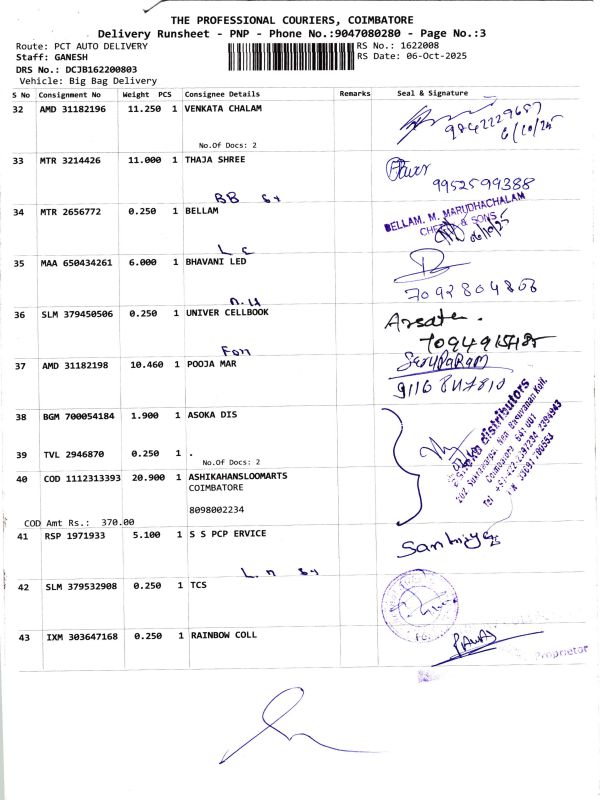 THE PROFESSIONAL COURIERS, COIMBATORE
Delivery Runsheet - PNP - Phone No.:9047080280 - Page No.:3
Route: PCT AUTO DELIVERY RS No.: 1622008
Staff: GANESH RS Date: 06-Oct-2025
DRS No.: DCJB162200803
Vehicle: Big Bag Delivery
S No Consignment No Weight PCS Consignee Details Remarks Seal & Signature
32 AMD 31182196 11.250 1 VENKATA CHALAM
9842229657
6/10/25
No.Of Docs: 2
33 MTR 3214426 11.000 1 THAJA SHREE
9952599388
BB
34 MTR 2656772 0.250 1 BELLAM
BELLAM. M. MARUDHACHALAM
& SONS
06/10/25
35 MAA 650434261 6.000 1 BHAVANI LED
7092804808
36 SLM 379450506 0.250 1 UNIVER CELLBOOK
37 AMD 31182198 10.460 1 POOJA MAR
38 BGM 700054184 1.900 1 ASOKA DIS
distributors
39 TVL 2946870 0.250 1 .
No.Of Docs: 2
40 COD 1112313393 20.900 1 ASHIKAHANSLOOMARTS
COIMBATORE
8098002234
COD Amt Rs.: 370.00
41 RSP 1971933 5.100 1 S S PCP ERVICE
42 SLM 379532908 0.250 1 TCS
43 IXM 303647168 0.250 1 RAINBOW COLL
Proprietor